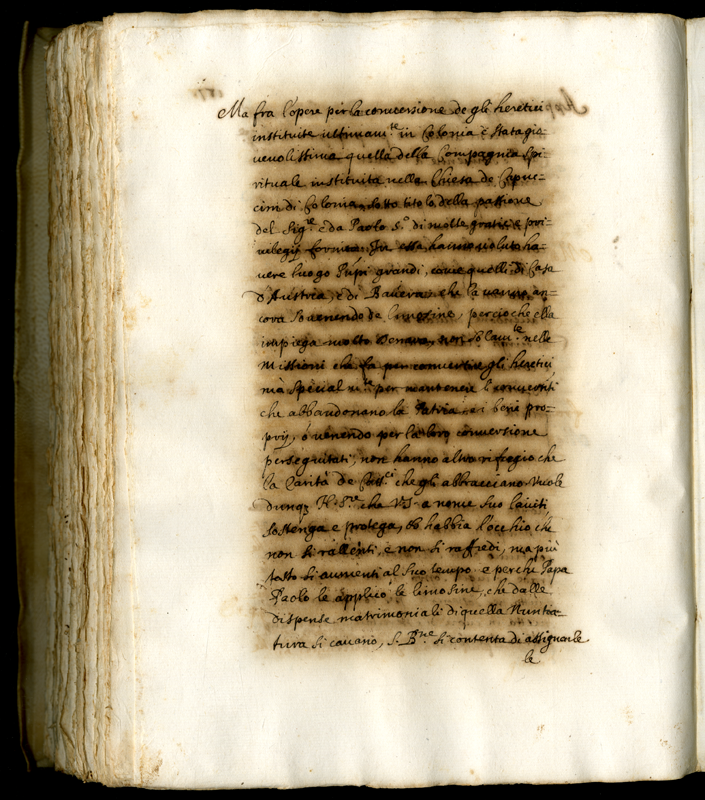 Ma fra l'opere per la conversione de gli heretici
instituite ultimam.te in Colonia è stata gio=
vevolissima quella della Compagnia Spi=
rituale instituita nella Chiesa de Capuc=
cini di Colonia, sotto titolo della passione
del Sig.re e da Paolo s.o di molte gratie, e pri=
vilegij In essa hanno voluto ha=
vere luogo Pñpi grandi, come quelli di Casa
d'Austria, e di Baviera, che la vanno an=
cora sovenendo de limosine, percioche ella
impiega molto denaro, non solam.te nelle
missioni che fa per convertire gli heretici,
mà special m.te per mantenere li convertiti
che abbandonano la Patria, e i beni pro=
prij, ò venendo per la loro conversione
perseguitati, non hanno altro rifugio che
la Carità de Catt.ci che gli abbracciano. Vuole
dunq3 N. S.re che V.S. a nome suo l'aviti,
sostenga e protega, et habbia l'occhio, che
non si rallenti, e non si raffredi, ma più
tosto si aumenti al suo tempo. e perchè Papa
Paolo le applicò le limosine, che dalle
dispense matrimoniali di quella Nuntia=
tura si cavano, S. B.ne si contenta di assignarle
le